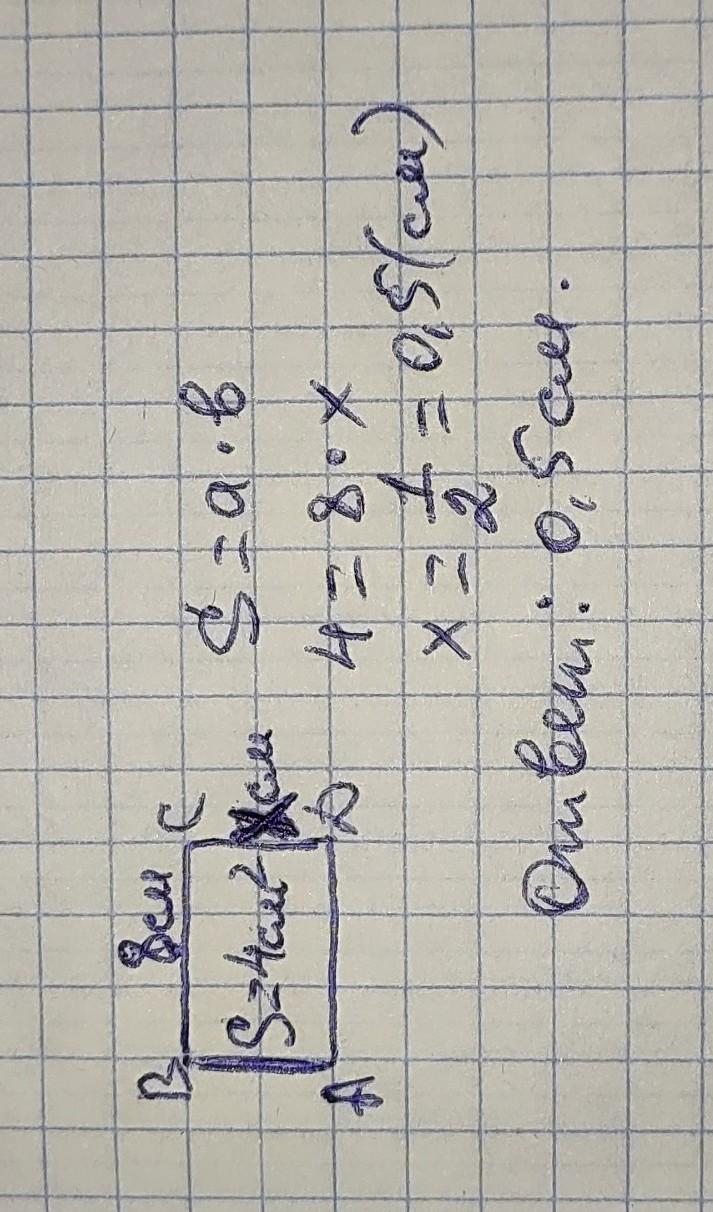 8см
B C
S=4см² xсм
A D
S = a · b
4 = 8 · x
x = 1/2 = 0,5 (см)
Ответ: 0,5 см.